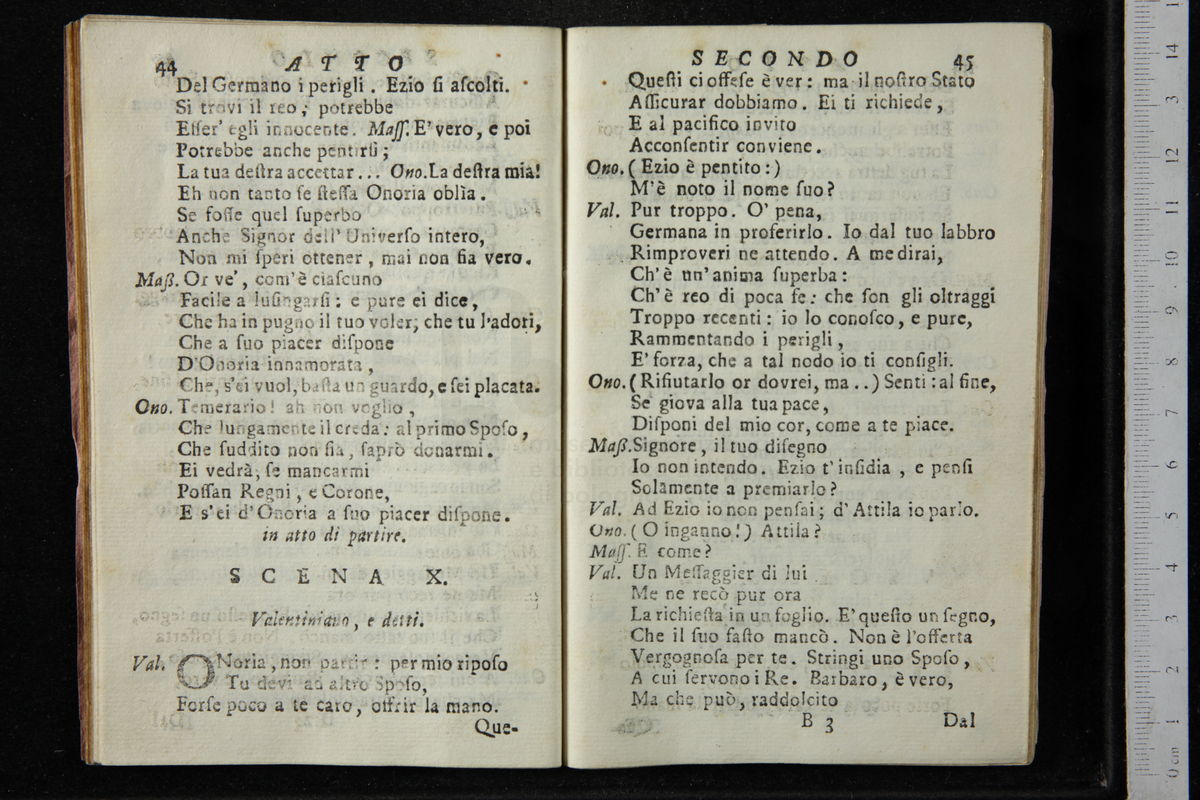 44 ATTO
Del Germano i perigli. Ezio ſi aſcolti.
Si trovi il reo; potrebbe
Eſſer' egli innocente. Maſſ. E' vero, e poi
Potrebbe anche pentirſi;
La tua deſtra accettar... Ono. La deſtra mia!
Eh non tanto ſe ſteſſa Onoria oblìa.
Se foſſe quel ſuperbo
Anche Signor dell' Univerſo intero,
Non mi ſperi ottener, mai non fia vero.
Maß. Or ve', com'è ciaſcuno
Facile a luſingarſi: e pure ei dice,
Che ha in pugno il tuo voler; che tu l'adori,
Che a ſuo piacer diſpone
D'Onoria innamorata,
Che, s'ei vuol, baſta un guardo, e ſei placata.
Ono. Temerario! ah non voglio,
Che lungamente il creda: al primo Spoſo,
Che ſuddito non ſia, ſaprò donarmi.
Ei vedrà, ſe mancarmi
Poſſan Regni, e Corone,
E s'ei d'Onoria a ſuo piacer diſpone.
in atto di partire.
SCENA X.
Valentiniano, e detti.
Val. ONoria, non partir: per mio ripoſo
Tu devi ad altro Spoſo,
Forſe poco a te caro, offrir la mano.
Que-
SECONDO 45
Queſti ci offeſe è ver: ma il noſtro Stato
Aſſicurar dobbiamo. Ei ti richiede,
E al pacifico invito
Acconſentir conviene.
Ono. (Ezio è pentito:)
M'è noto il nome ſuo?
Val. Pur troppo. O' pena,
Germana in proferirlo. Io dal tuo labbro
Rimproveri ne attendo. A me dirai,
Ch'è un'anima ſuperba:
Ch'è reo di poca fe: che ſon gli oltraggi
Troppo recenti: io lo conoſco, e pure,
Rammentando i perigli,
E' forza, che a tal nodo io ti conſigli.
Ono. (Rifiutarlo or dovrei, ma..) Senti: al fine,
Se giova alla tua pace,
Diſponi del mio cor, come a te piace.
Maß. Signore, il tuo diſegno
Io non intendo. Ezio t'inſidia, e penſi
Solamente a premiarlo?
Val. Ad Ezio io non penſai; d'Attila io parlo.
Ono. (O inganno!) Attila?
Maſſ. E come?
Val. Un Meſſaggier di lui
Me ne recò pur ora
La richieſta in un foglio. E' queſto un ſegno,
Che il ſuo faſto mancò. Non è l'offerta
Vergognoſa per te. Stringi uno Spoſo,
A cui ſervono i Re. Barbaro, è vero,
Ma che può, raddolcito
B 3 Dal